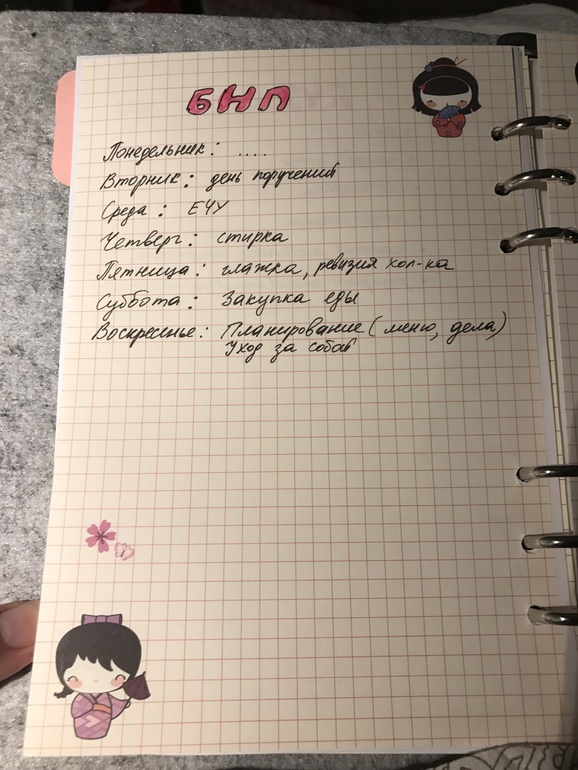 БНП
Понедельник: ....
Вторник: день поручений
Среда: ЕЧУ
Четверг: стирка
Пятница: глажка, ревизия хол-ка
Суббота: Закупка еды
Воскресенье: Планирование (меню, дела)
Уход за собой